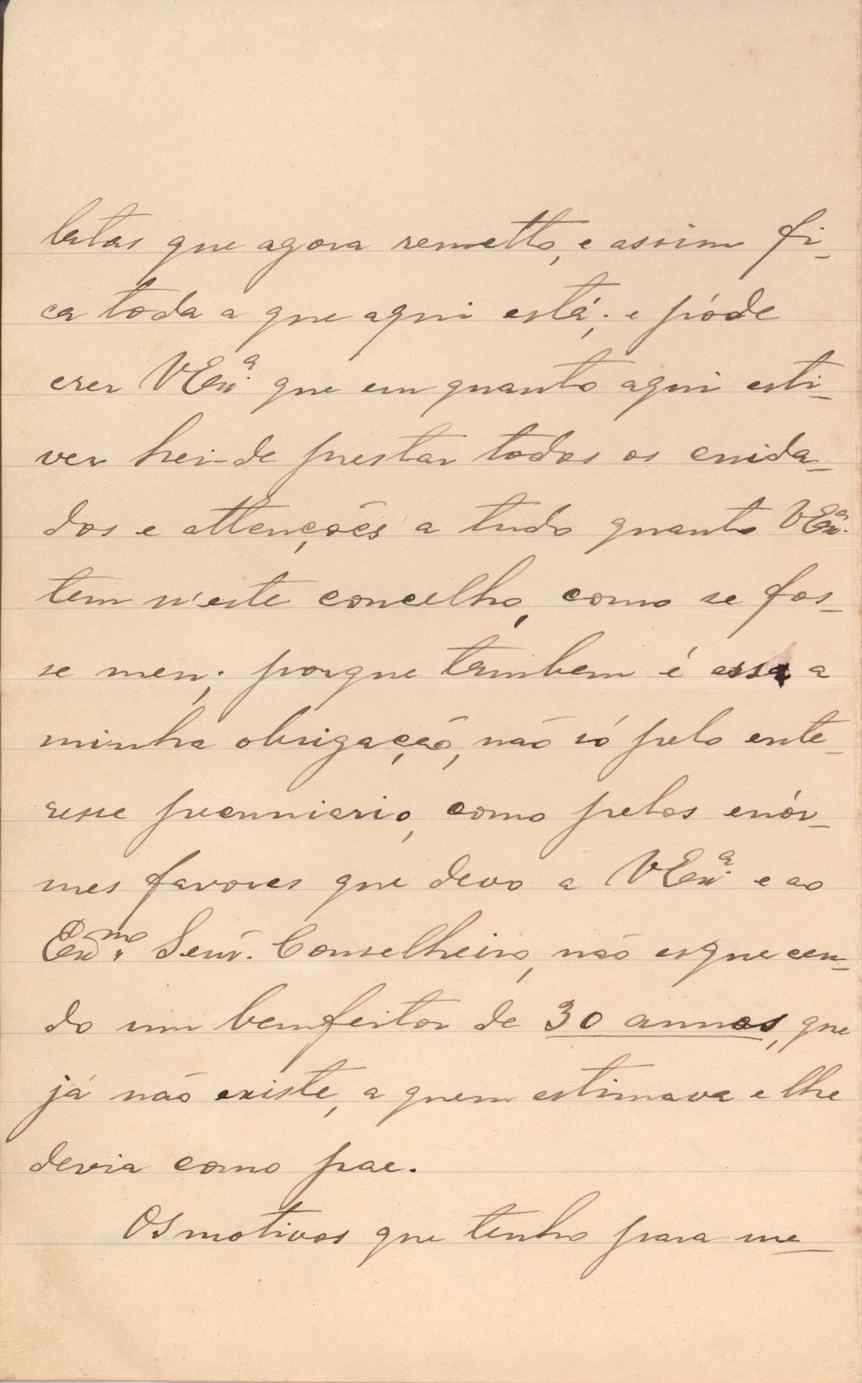 latas que agora remetto, e assim fi-
ca toda a que aqui está; e póde
crer V Ex.ª que em quanto aqui esti-
ver hei-de prestar todos os cuida-
dos e attenções a tudo quanto V Ex.ª
tem n'este concelho, como se fos-
se meu; porque tambem é essa a
minha obrigação, não só pelo ente-
resse pecunniario, como pelos enór-
mes favores que devo a V Ex.ª e ao
Exmo. Senr. Conselheiro, não esquecen-
do um bemfeitor de 30 annos, que
já não existe, a quem estimava e lhe
devia como pae.
Os motivos que tenho para me-